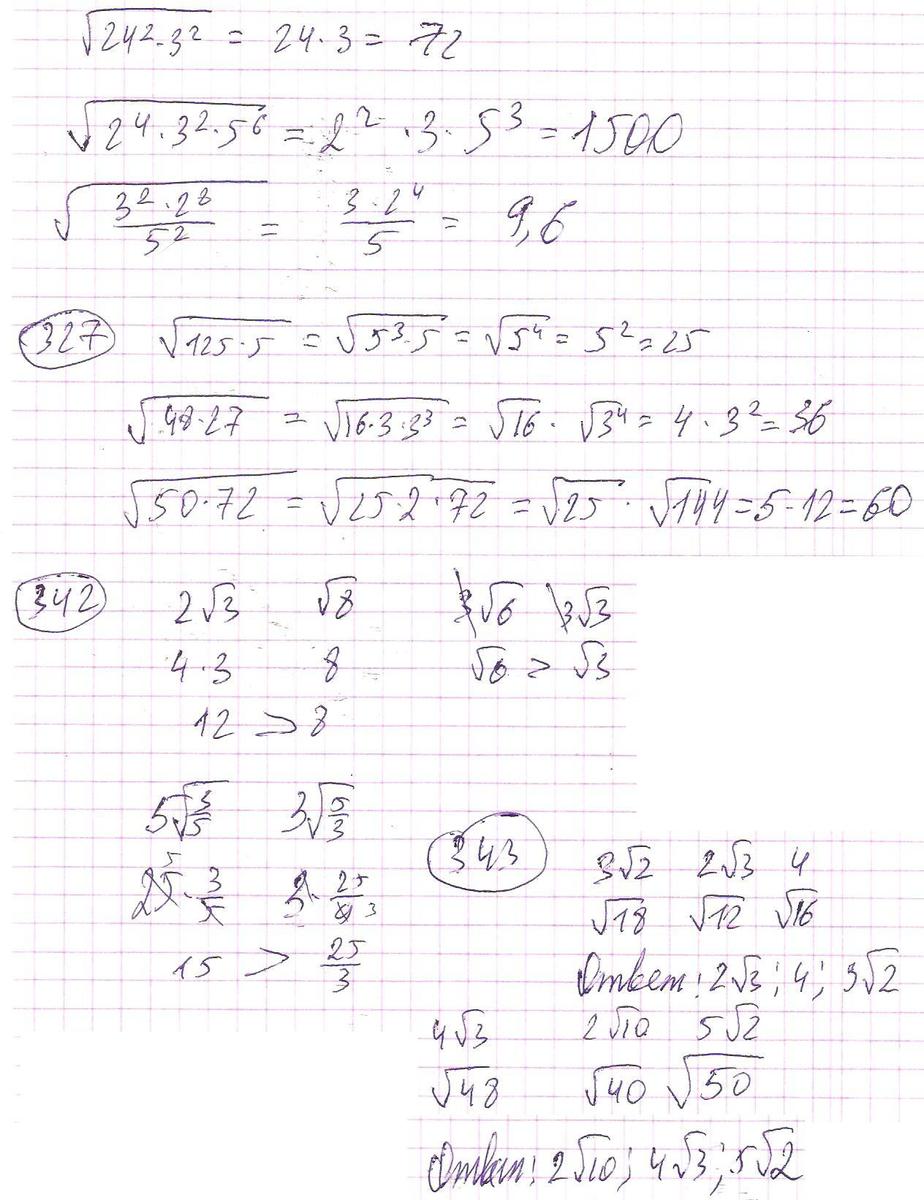 √(24²·3²) = 24·3 = 72
√(2⁴·3²·5⁶) = 2²·3·5³ = 1500
√(3²·2⁸/5²) = 3·2⁴/5 = 9,6
327 √(125·5) = √(5³·5) = √5⁴ = 5² = 25
√(48·27) = √(16·3·3³) = √16 · √3⁴ = 4·3² = 36
√(50·72) = √(25·2·72) = √25 · √144 = 5·12 = 60
342 2√3 √8 3√6 3√3
4·3 8 √6 > √3
12 > 8
5√(3/5) 3√(5/3)
25 5 · 3/5 25/ 3
15 > 25/3
343 3√2 2√3 4
√18 √12 √16
Ответ: 2√3; 4; 3√2
4√3 2√10 5√2
√48 √40 √50
Ответ: 2√10; 4√3; 5√2